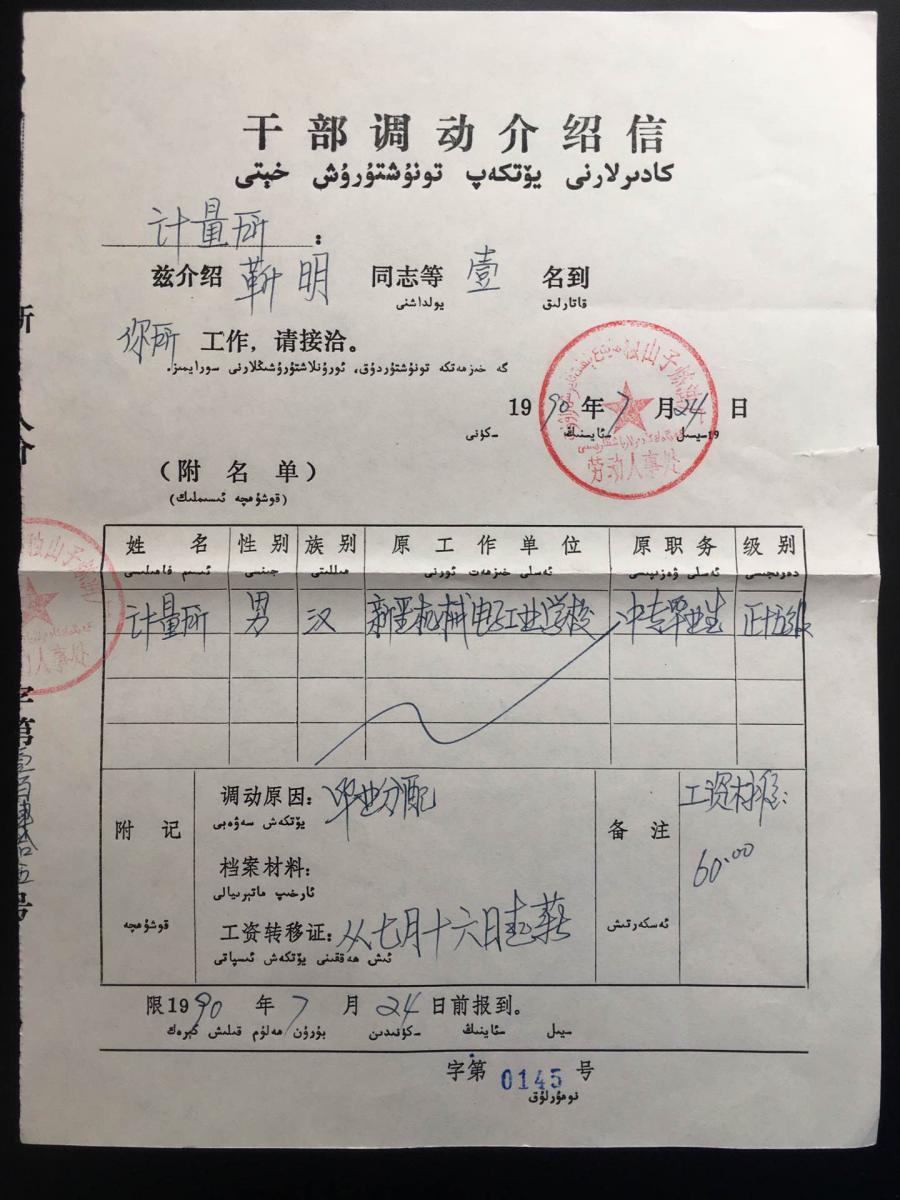 干部调动介绍信
كادىرلارنى يۆتكەپ تونۇشتۇرۇش خېتى
计量所：
兹介绍 靳明 同志等 壹 名到
يولداشنى قاتارلىق
你所 工作，请接洽。
گە خىزمەتكە تونۇشتۇردۇق، ئورۇنلاشتۇرۇشىڭلارنى سورايمىز.
1990年7月24日
19-يىل ـئاينىڭ ـكۈنى
独山子炼油厂
劳动人事处
（附名单）
(قوشۇمچە ئىسىملىك)
姓名 性别 族别 原工作单位 原职务 级别
ئىسىم فامىلىسى جىنسى مىللىتى ئەسلى خىزمەت ئورنى ئەسلى ۋەزىپىسى دەرىجىسى
计量所 男 汉 新疆机械电子工业学校 中专毕业生 正十五级
附记
قوشۇمچە
调动原因：毕业分配
يۆتكەش سەۋەبى
档案材料：
ئارخىپ ماتېرىيالى
工资转移证：从七月十六日起薪
ئىش ھەققىنى يۆتكەش ئىسپاتى
备注
ئەسكەرتىش
工资标准：
60.00
限1990年7月24日前报到。
ـيىل ـئاينىڭ ـكۈنىدىن بۇرۇن مەلۇم قىلىش كېرەك
字第 0145 号
نومۇرلۇق
人介
字第壹百肆拾五号